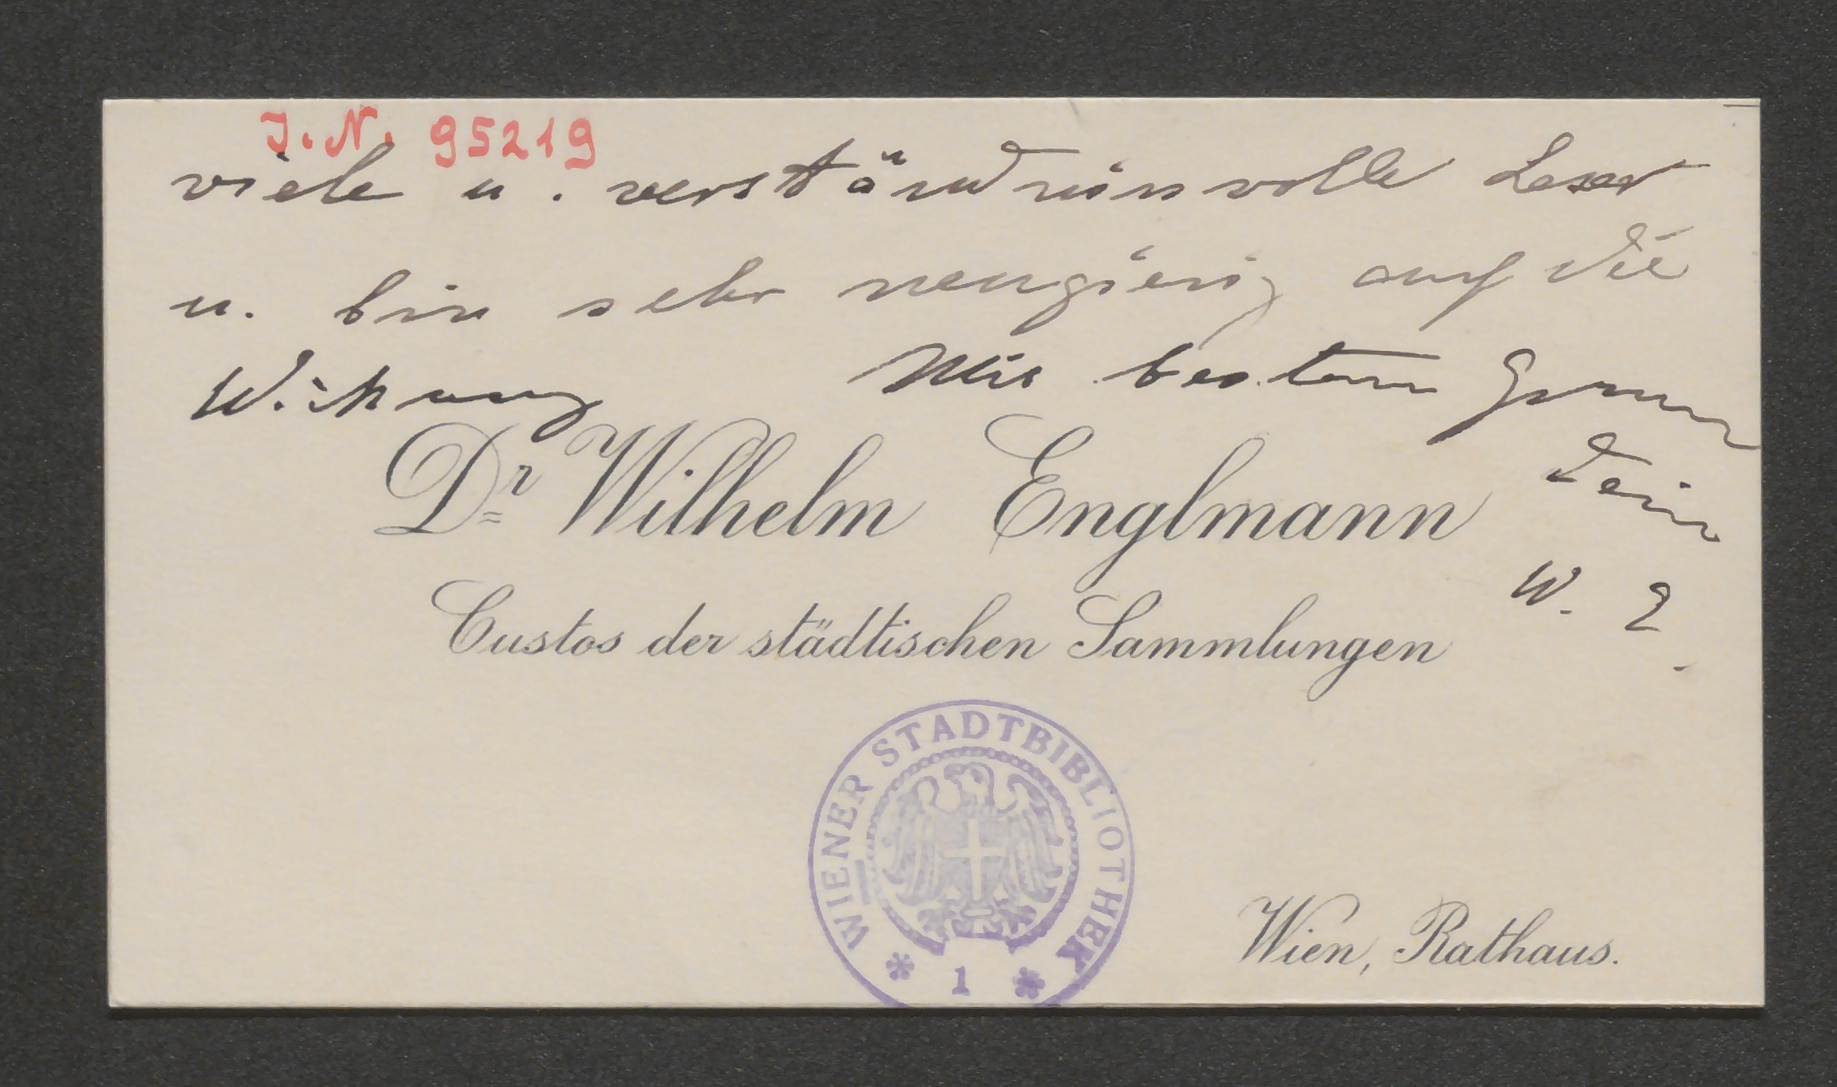 J. N. 95219
viele u. verständnisvolle Leser
u. bin sehr neugierig auf die
Wirkung Mit besten Grüssen
Dr Wilhelm Englmann
Dein
W. E.
Custos der städtischen Sammlungen
WIENER STADTBIBLIOTHEK
* 1 *
Wien, Rathaus.